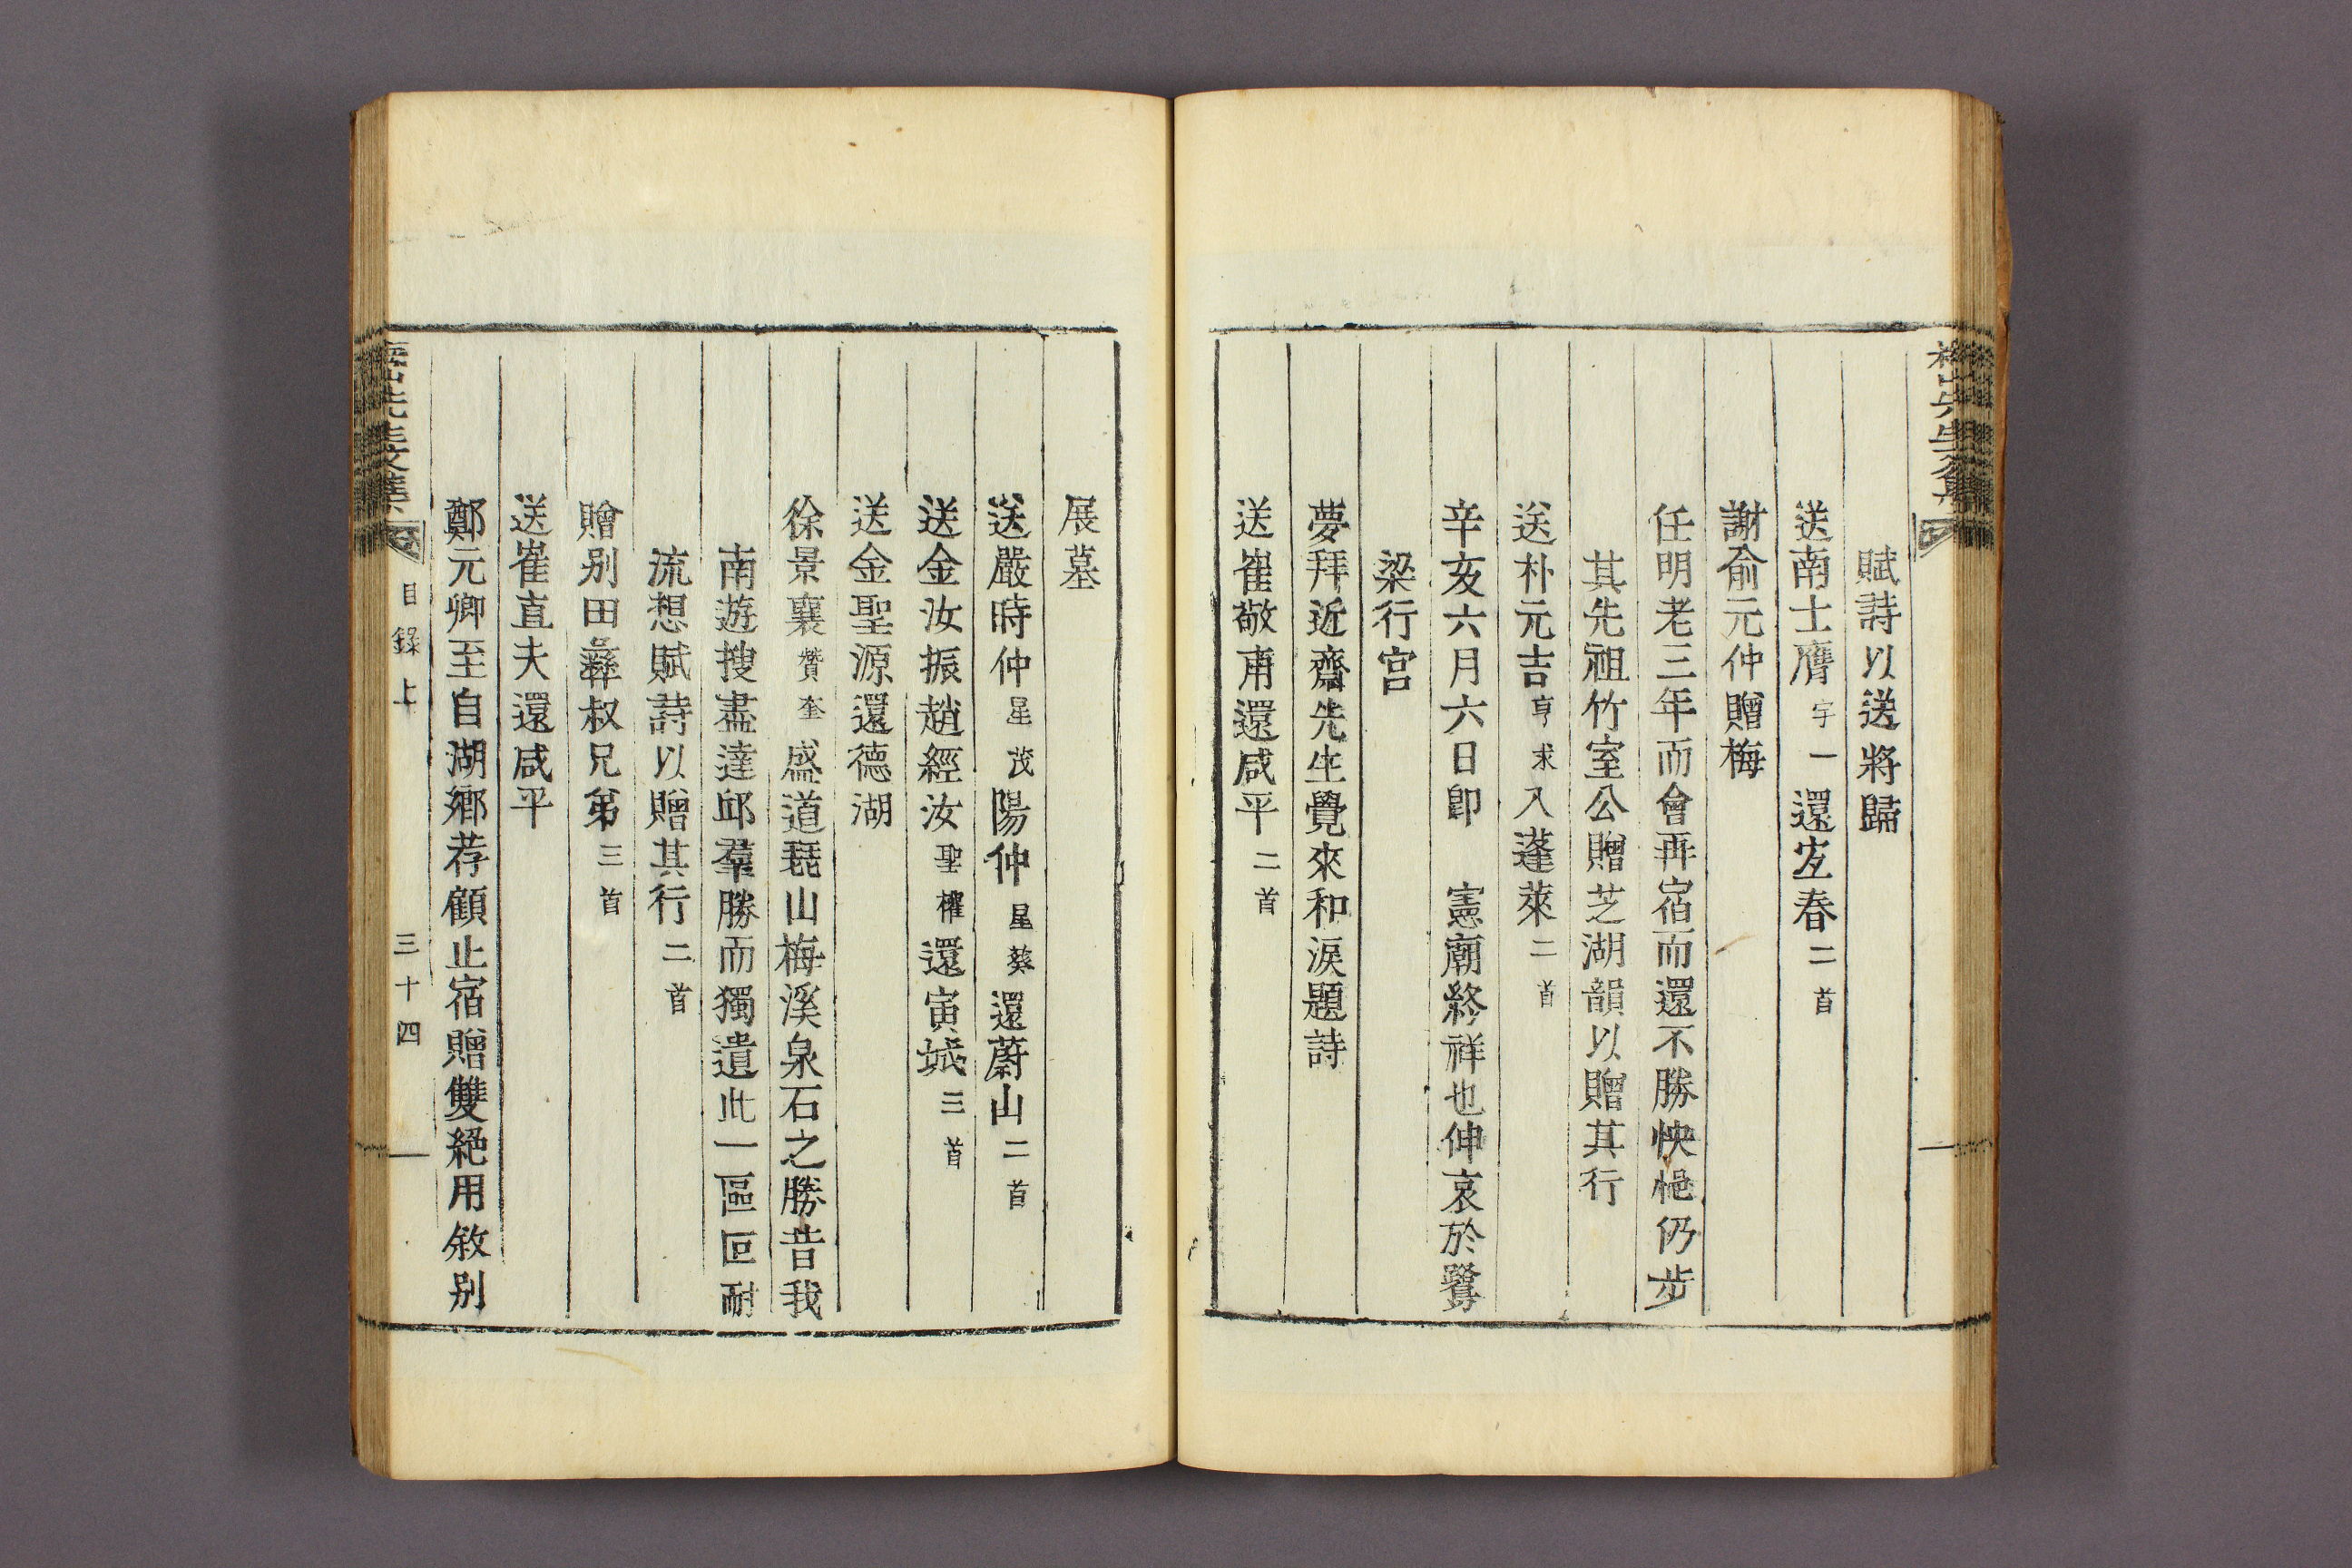 賦詩以送將歸
送南士膺宇一還宜春二首
謝俞元仲贈梅
任明老三年而會再宿而還不勝怏悒仍步
其先祖竹室公贈芝湖韻以贈其行
送朴元吉亨求入蓬萊二首
辛亥六月六日卽 憲廟終祥也伸哀於鷺
梁行宮
夢拜近齋先生覺來和淚題詩
送崔敬甫還咸平二首
展墓
送嚴時仲星茂陽仲星葵還蔚山二首
送金汝振趙經汝聖櫂還寅城三首
送金聖源還德湖
徐景襄贊奎盛道琵山梅溪泉石之勝昔我
南遊搜盡達邱羣勝而獨遺此一區叵耐
流想賦詩以贈其行二首
贈別田彝叔兄弟三首
送崔直夫還咸平
鄭元卿至自湖鄉荐顧止宿贈雙絕用敘別
目錄上 三十四